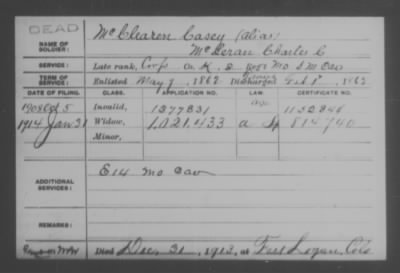 DEAD
NAME OF SOLDIER: McClearen Casey (alias)
McLeran Charles C
SERVICE: Late rank, Corp Co. K. 2 Reg't Mo S M Cav
TERM OF SERVICE: Enlisted May 1, 1862 Discharged Feb 1st, 1863
DATE OF FILING. CLASS. APPLICATION NO. LAW. CERTIFICATE NO.
1908 Oct 5 Invalid, 1377831 1152846
1914 Jan 31 Widow, 1,021,433 814740
Minor,
ADDITIONAL SERVICES: E 14 Mo Cav
REMARKS:
Died Dec, 31, 1913, at Fort Logan, Colo